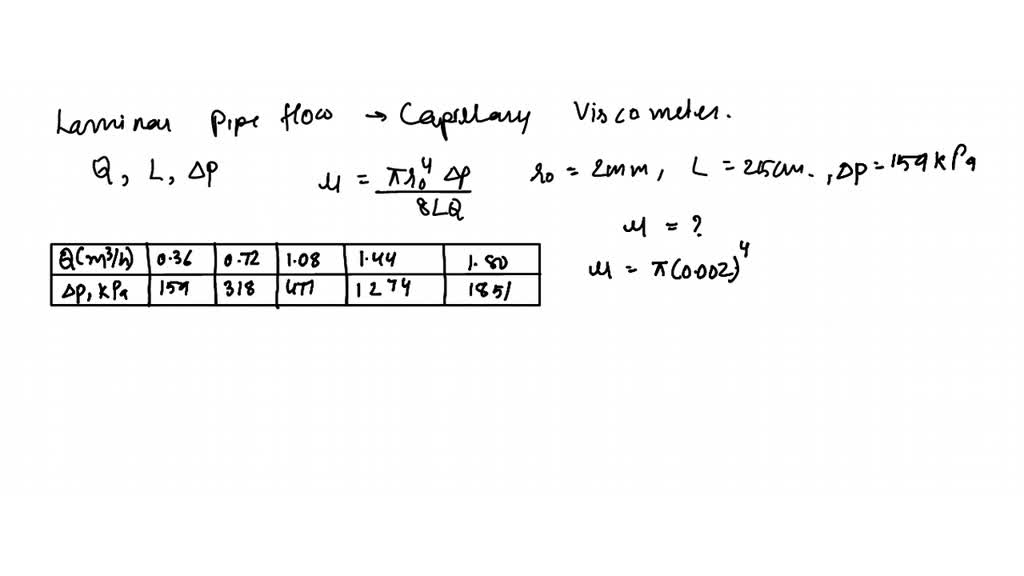 Laminar pipe flow → Capillary Viscometer.
Q, L, Δp
μ = πr₀⁴ Δp / 8LQ
r₀ = 2mm, L = 25cm., Δp = 159 kPa
μ = ?
μ = π(0.002)⁴
Q(m³/h) 0.36 0.72 1.08 1.44 1.80
Δp, kPa 159 318 477 1274 1851